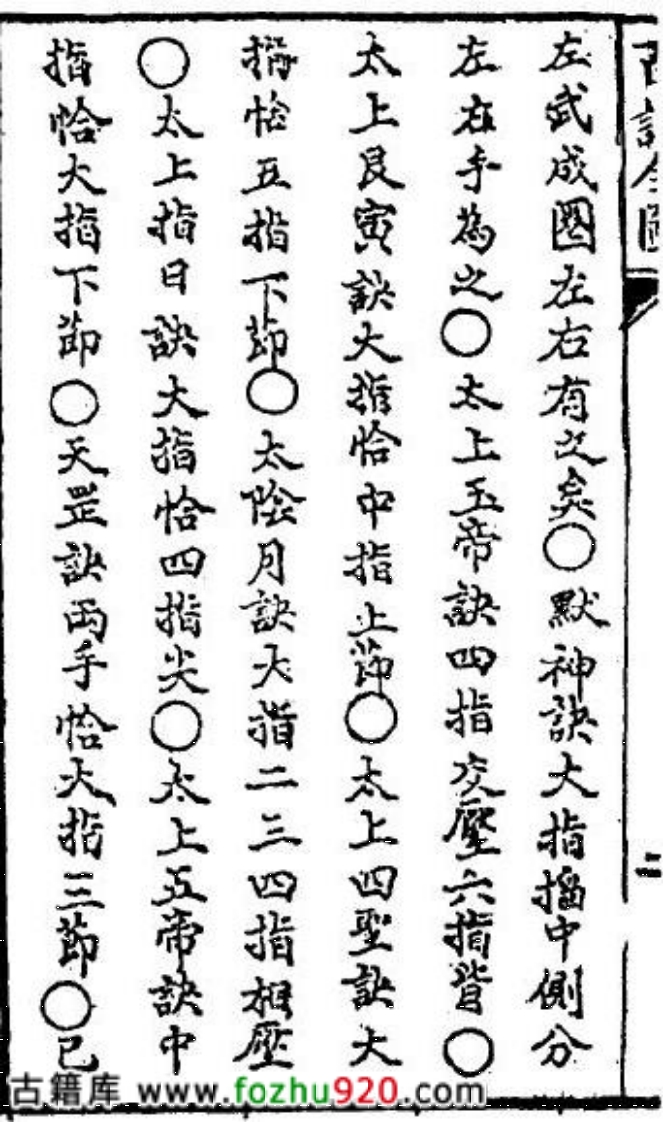 左武成圈左右有之矣○默神訣大指掐中側分
左右手為之○太上玉帝訣四指交壓六指背○
太上艮寅訣大指恰中指上節○太上四聖訣大
指恰五指下節○太陰月訣大指二三四指相壓
○太上指日訣大指恰四指尖○太上五帝訣中
指恰大指下節○天罡訣兩手恰大指三節○已
古籍库 www.fozhu920.com